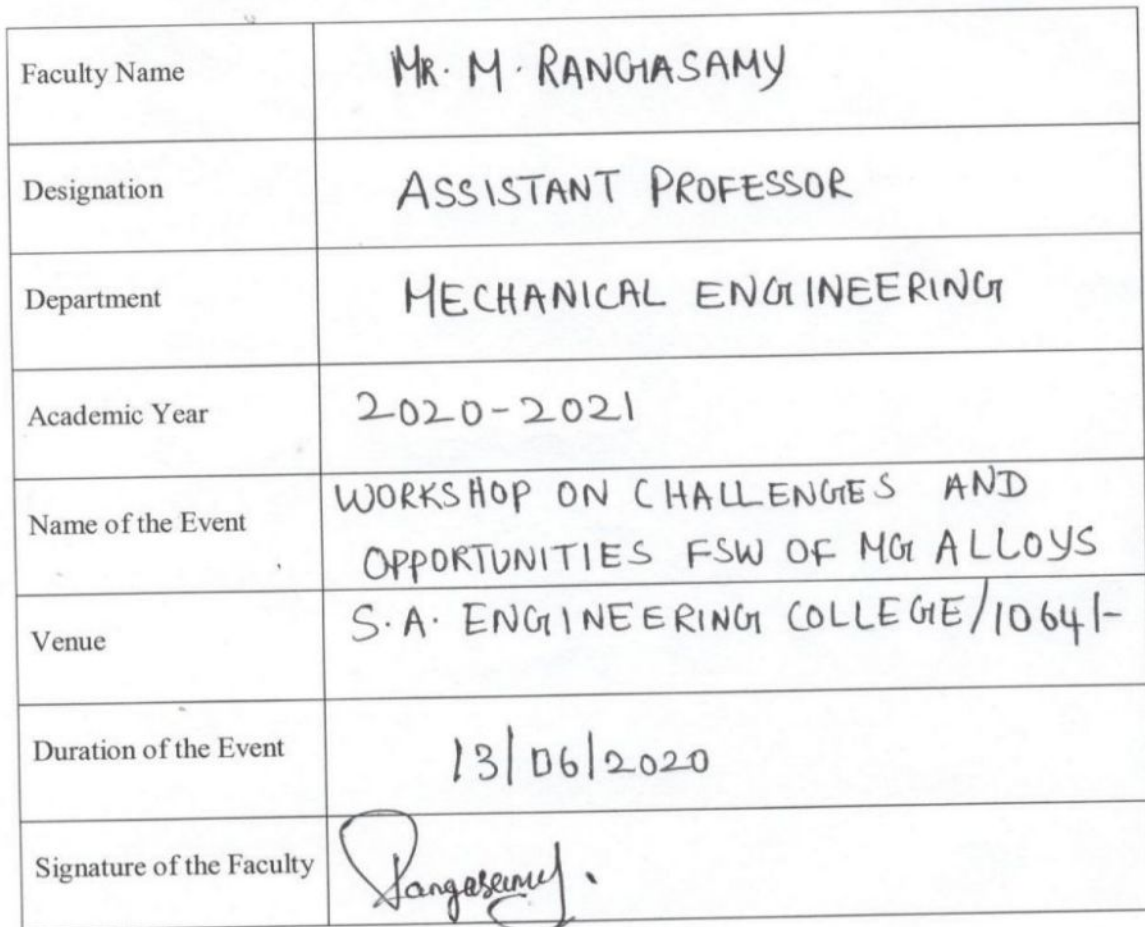 Faculty Name MR. M. RANGASAMY
Designation ASSISTANT PROFESSOR
Department MECHANICAL ENGINEERING
Academic Year 2020-2021
Name of the Event WORKSHOP ON CHALLENGES AND
OPPORTUNITIES FSW OF MG ALLOYS
Venue S.A. ENGINEERING COLLEGE/1064/-
Duration of the Event 13/06/2020
Signature of the Faculty Rangasamy.